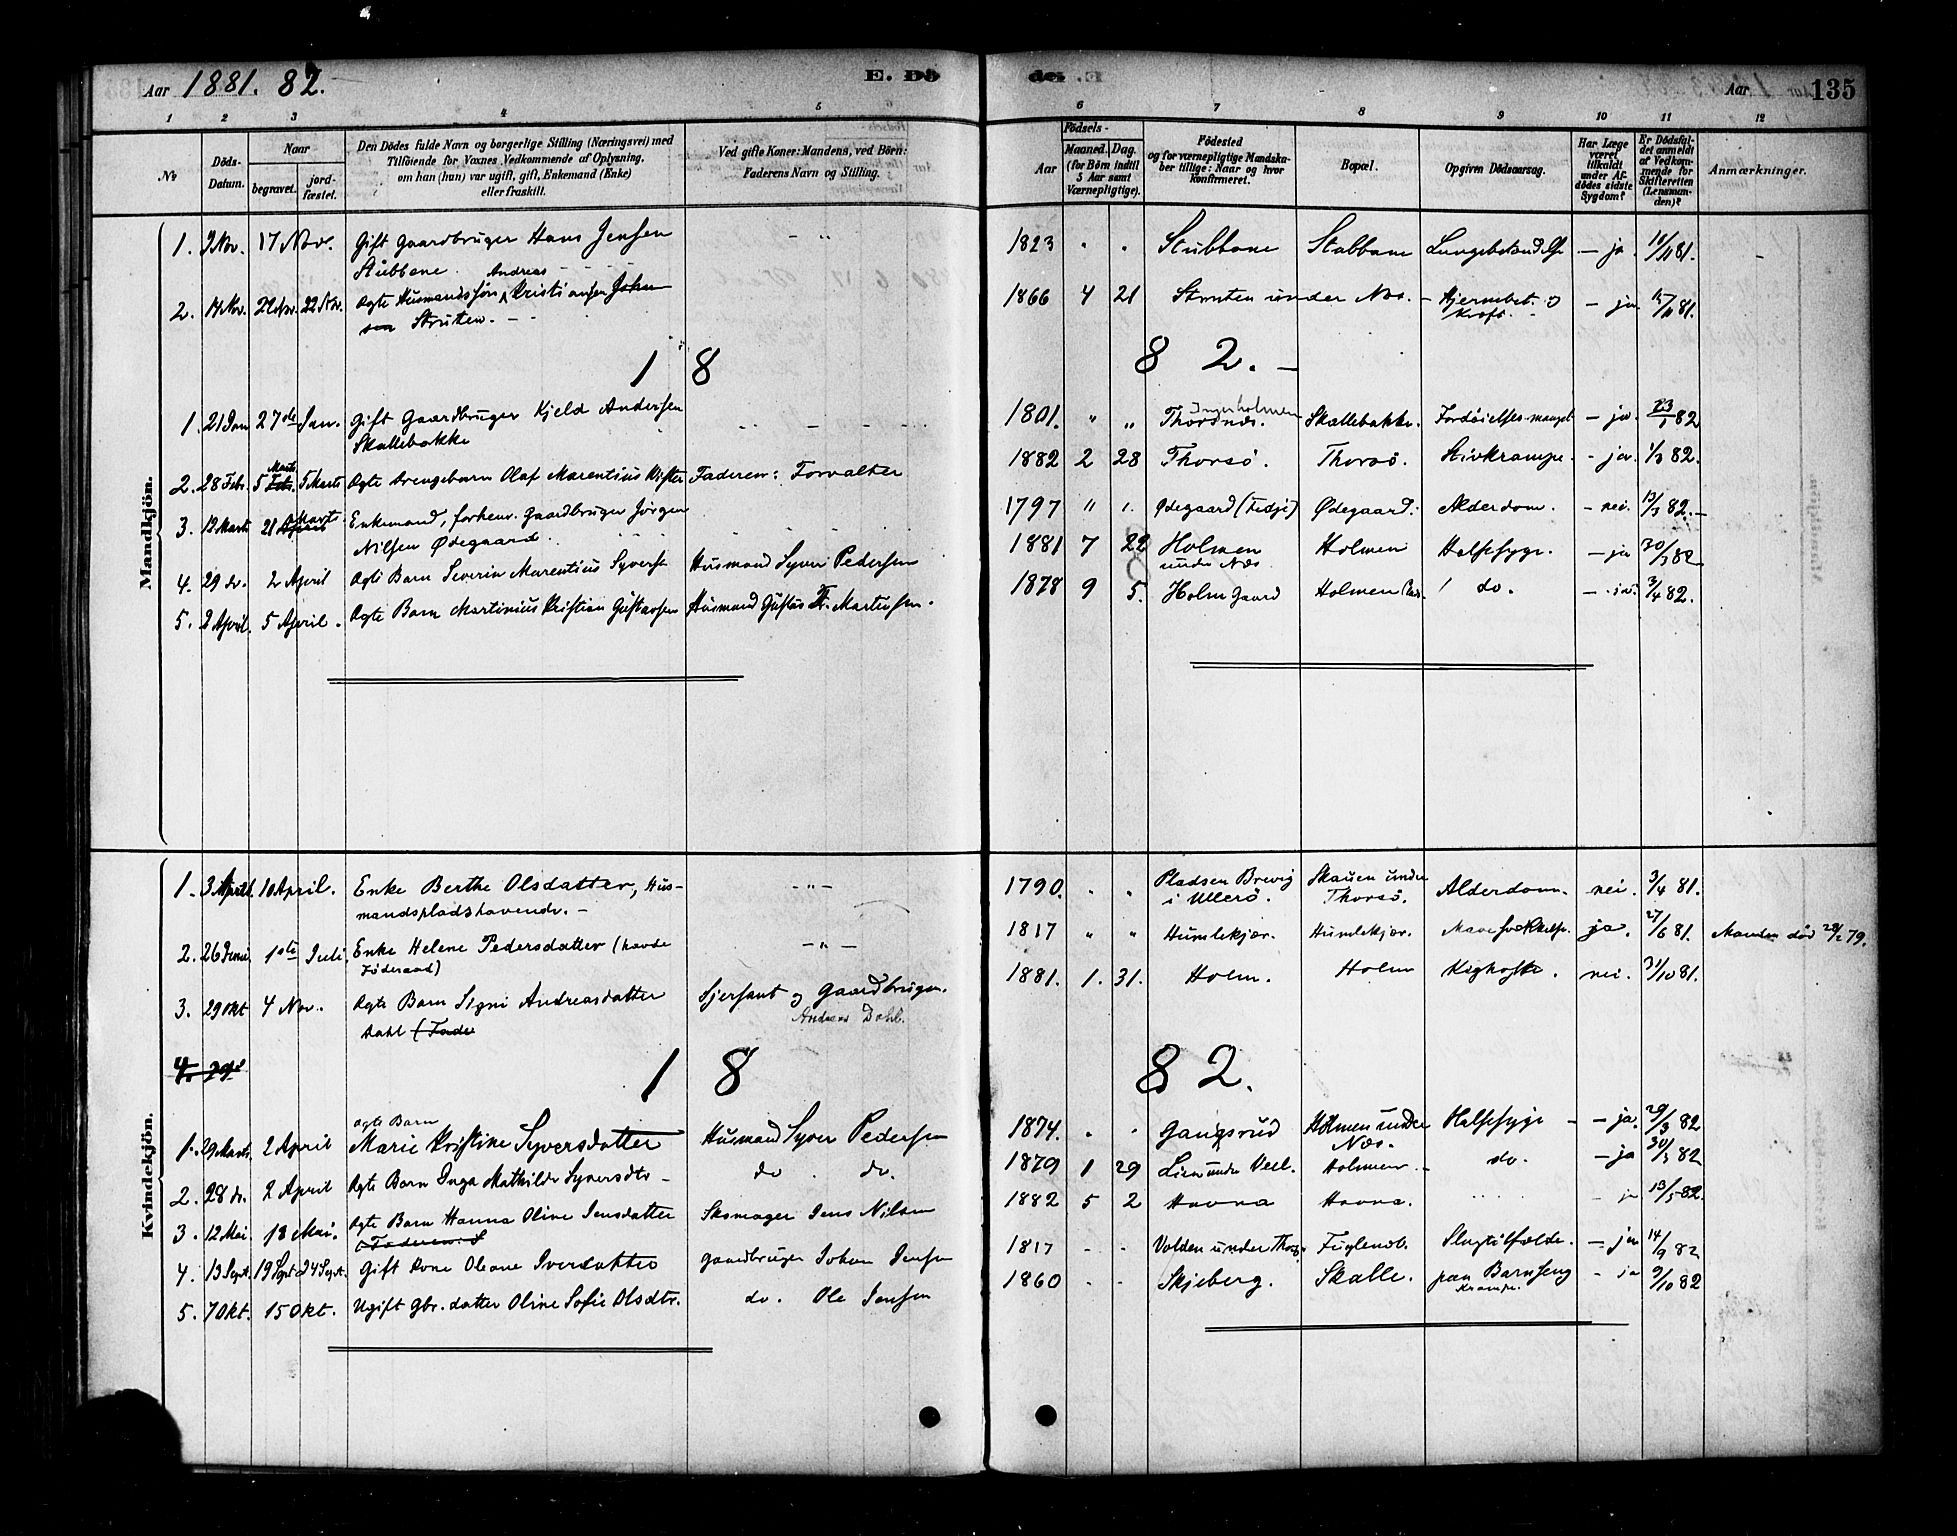 Aar 1881. 82.
E. Dö
de. E
Aar
135
1 2 3 4 5
6 7 8 9 10 11 12
No
Döds-Datum.
Naar
begravet.
jord-fæstet.
Den Dödes fulde Navn og borgerlige Stilling (Næringsvei) med
Tilföiende for Voxnes Vedkommende af Oplysning,
om han (hun) var ugift, gift, Enkemand (Enke)
eller fraskilt.
Ved gifte Koner: Mandens, ved Börn:
Faderens Navn og Stilling.
Födsels-
Aar
Maaned. Dag.
(for Börn indtil
5 Aar samt
Værnepligtige).
Födested
og for værnepligtige Mandska-
ber tillige: Naar og hvor
konfirmeret.
Bopæl.
Opgiven Dödsaarsag.
Har Læge
været
tilkaldt
under Af-
dödes sidste
Sygdom?
Er Dödsfal-
det anmeldt
af Vedkom-
mende for
Skifteretten
(Lensman-
den)?
Anmærkninger.
Mandkjön.
1. 9 Nov. 17 Nov. Gift Gaardbruger Hans Jensen
Stubbene. 1823 " " Stubbene Stabbane Lungebetændelse - ja 10/11 81.
2. 14 Nov. 22 Nov. 22 Nov. Ægte Husmandssøn Andreas Kristiansen John
sen Strutten. 1866 4 21 Strutten under Næs. - Hjernebet. - ja 15/11 81.
18 82.
1. 21 Jan 27de Jan. Gift Gaardbruger Kjeld Andersen
Skallebakke 1801. " " Thordnæs. Skallebakke. Fordøielses-mangel - ja 23/1 82
2. 28 Febr. 5 Febr. Marts 5 Marts Ægte Drengebarn Olaf Marentius Faderen: Forvalter 1882 2 28 Thorsö. Thorsö. Stivkrampe. - ja. 1/3 82.
3. 12 Marts 21 Marts Enkemand, forhenv. Gaardbruger Jörgen
Nilsen Ødegaard. 1797 " " Ødegaard Ødegaard. Alderdom. - nei. 13/3 82.
4. 29 do. 2 April Ægte Barn Severin Marentius Syvers. Husmand Syver Pedersen 1881 7 22 Holmen
under Næs Holmen Halsesyge. - ja 30/3 82
5. 2 April. 5 April. Ægte Barn Martinius Kristian Gustavsen Husmand Gustav Fr. Martinsen. 1878 9 5. Holmgaard Holmen do. - ja. 3/4 82.
Kvindekjön.
1. 3 April 10 April. Enke Berthe Olsdatter, Hus-
mandspladshavende. - 1790. " " Pladsen Brevig
i Ullerö. Skauen under
Thorsö. Alderdom. nei. 3/4 81.
2. 26 Juni 1ste Juli. Enke Helene Pedersdatter (havde
Föderaad) 1817 " " Humlekjær. Humlekjær. Mavesvækkelse. ja. 27/6 81. Manden død 79.
3. 29 Okt 4 Nov. Ægte Barn Signi Andreasdatter
Dahl (Fader Sjersant og Gaardbruger.
Andreas Dahl. 1881. 1. 31. Holm. Holm Kighoste. nei. 31/10 81.
4. 29de
18 82.
1. 29 Marts 2 April Ægte Barn
Marie Kristine Syversdatter Husmand Syver Pedersen 1874. " " Gangsrud Holmen under
Næs. Halsesyge - - ja. 29/3 82
2. 28 do. 2 April Ægte Barn Inga Mathilde Syversdtr - do do. 1879 1 29 Lien under Veel. Holmen. do. - ja 30/3 82
3. 12 Mai. 18 Mai. Ægte Barn Hanna Oline Jensdatter
Faderen: S Skomager Jens Nilsen 1882 5 2 Havna Havna. - ja 13/5 82.
4. 13 Sept. 19 Sept. 24 Sept. Gift Kone Oleane Iversdatter Gaardbruger Johan Jensen 1817 - - Volden under Thors. Fuglevik. Slagtilfælde. - ja 14/9 82
5. 7 Okt. 15 Okt. Ugift Gbr. datter Oline Sofie Olsdtr. do. Ole Jensen 1860 - - Skjeberg. Skalle. paa Barnseng
Krampe. - ja 9/10 82